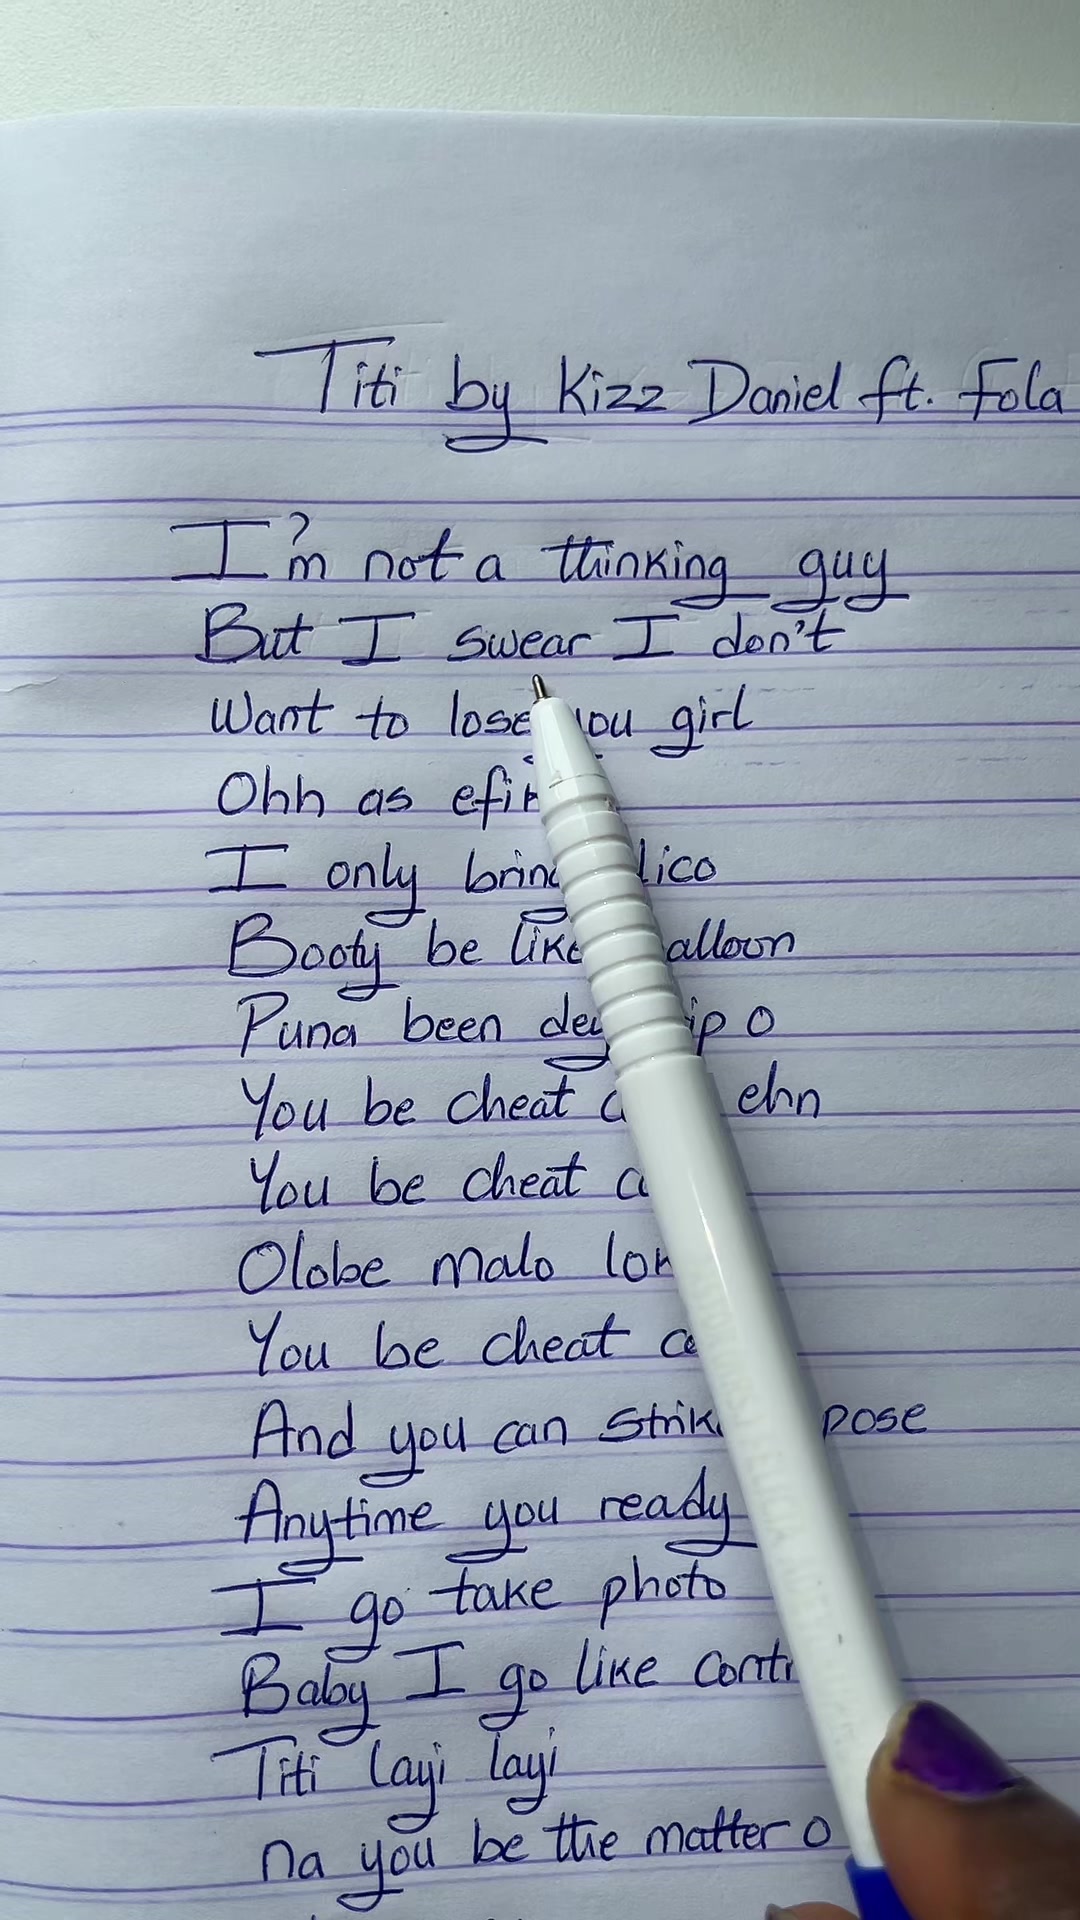 Titi by Kizz Daniel ft. Fola
I'm not a thinking guy
But I swear I don't
Want to lose you girl
Ohh as
I only lico
Booty be like
Puna been dey o
You be cheat ehn
You be cheat
Olobe malo
You be cheat
And you can strike pose
Anytime you ready
I go take photo
Baby I go like
Titi layi layi
na you be the matter o